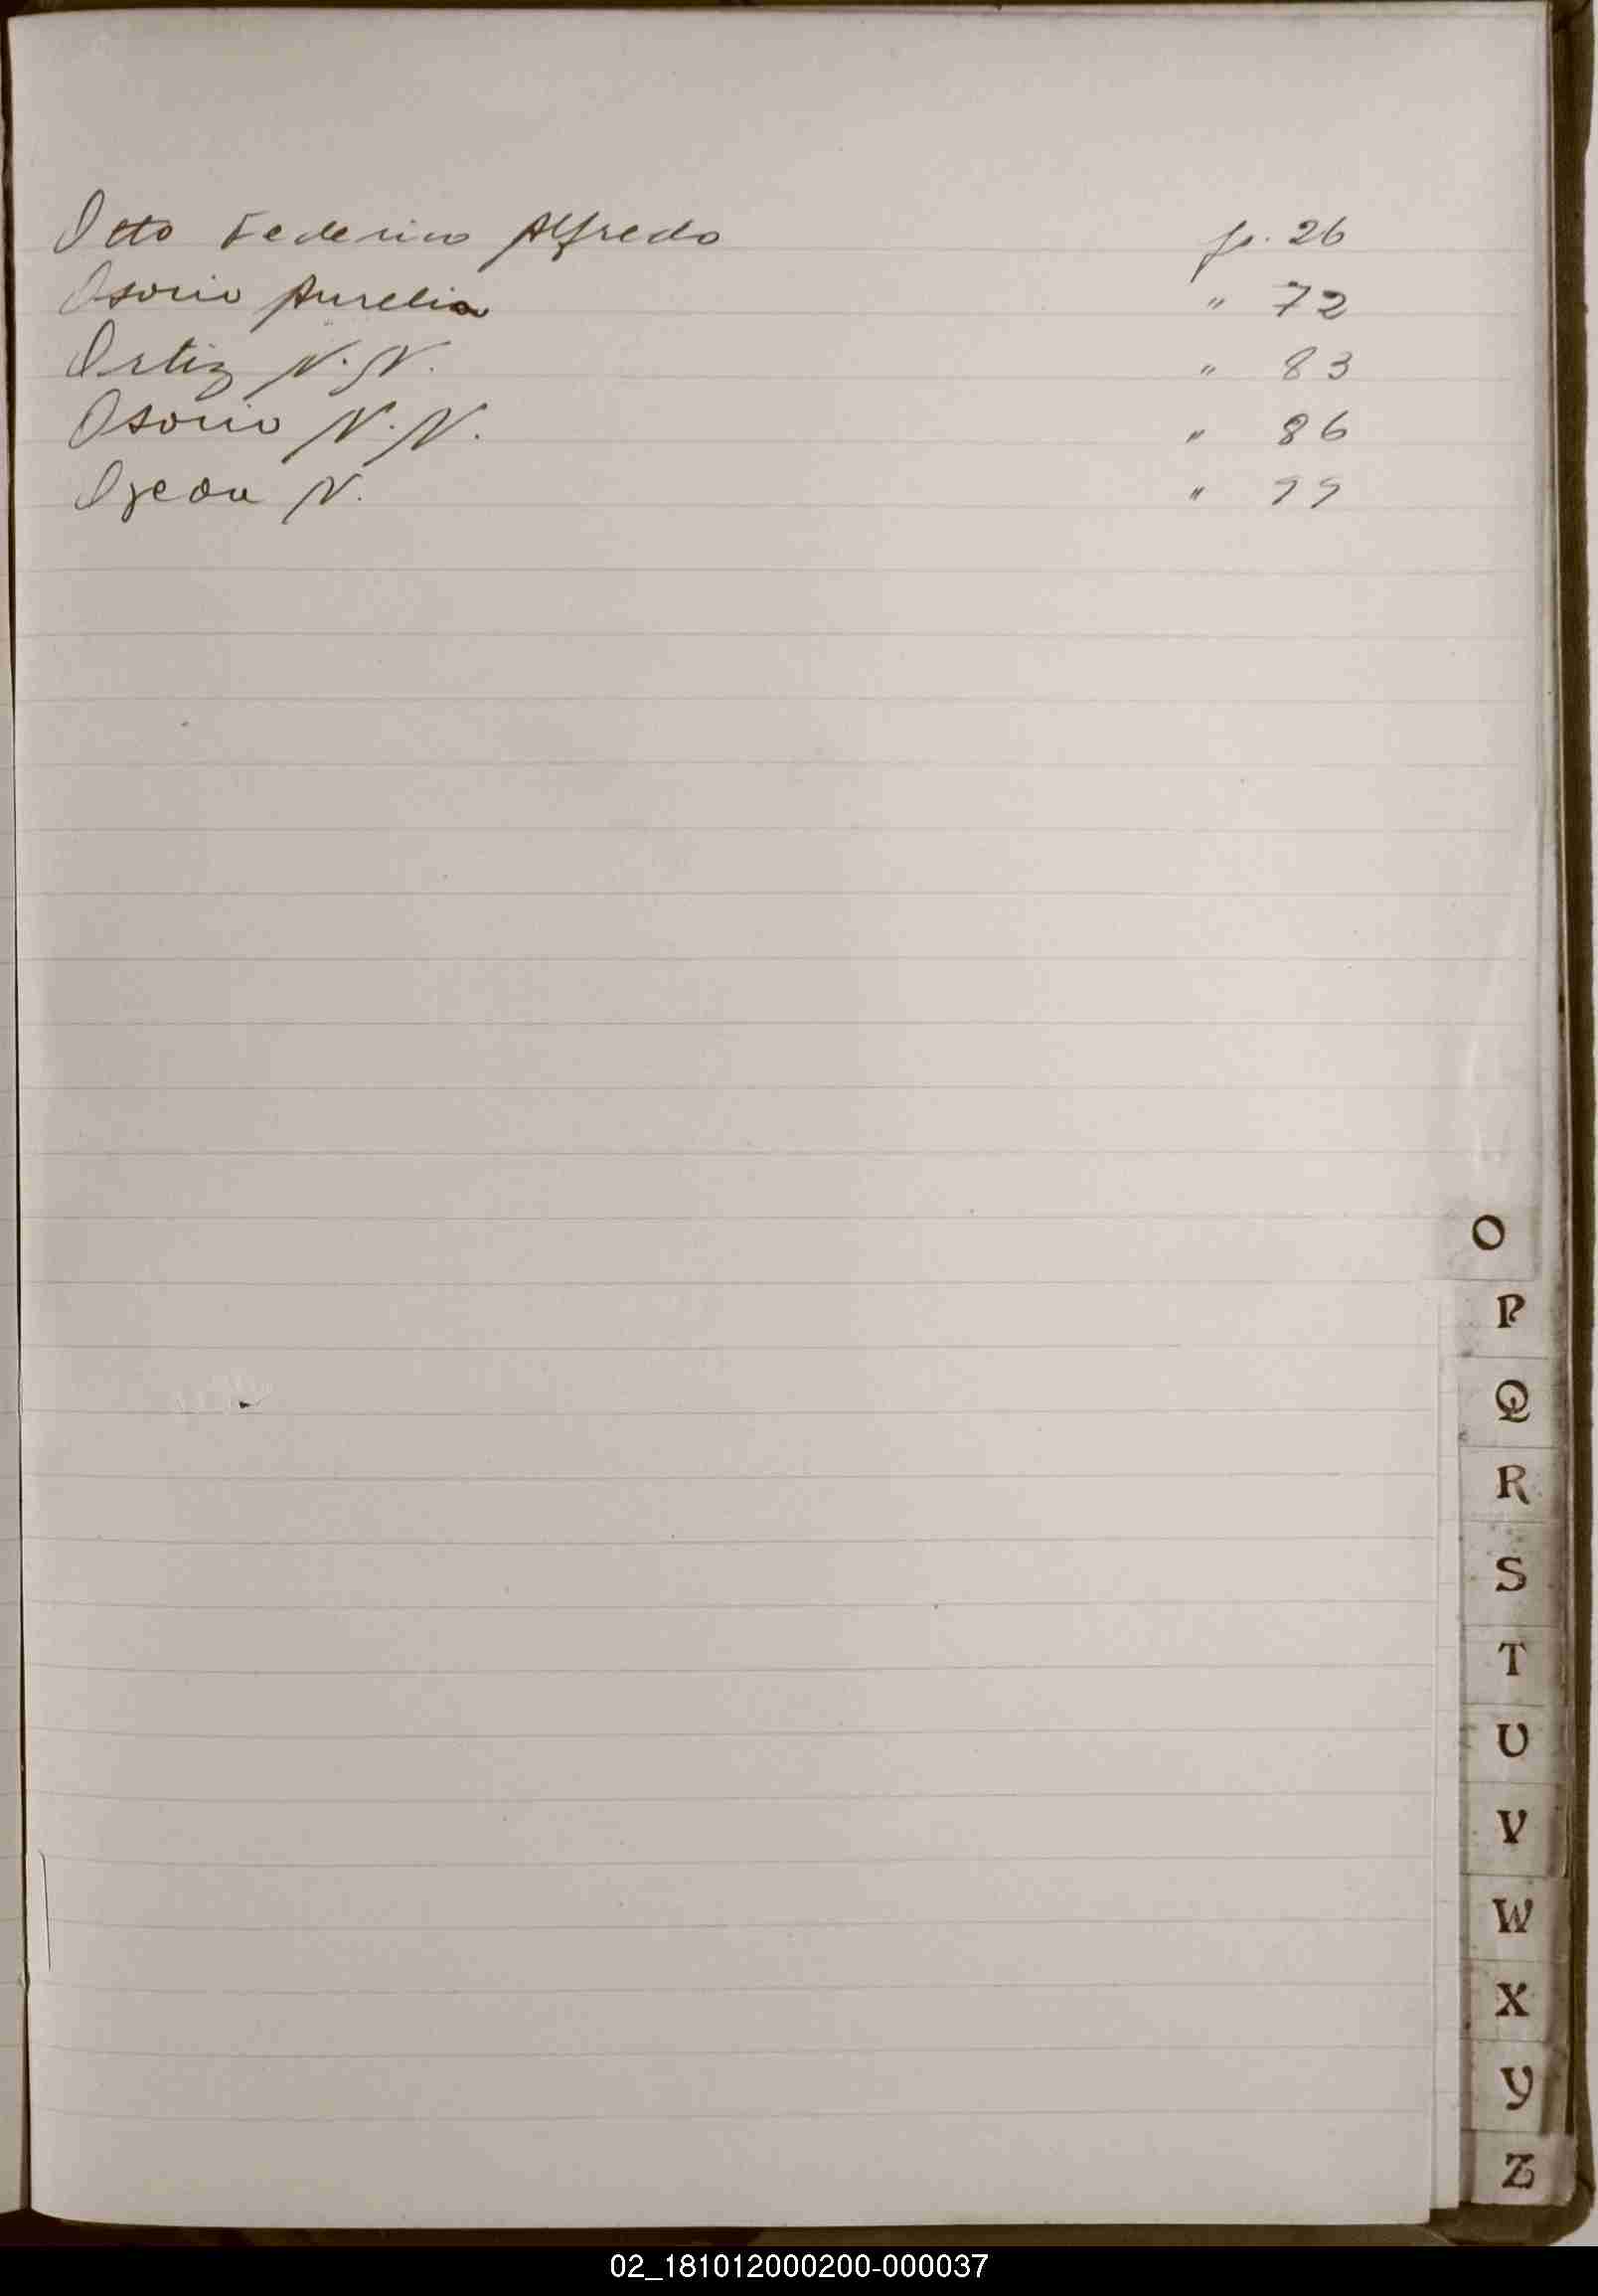 Otto Federico Alfredo p. 26
Osorio Aurelia " 72
Ortiz N. N. " 83
Osorio N. N. " 86
N. " 99
O
P
Q
R
S
T
U
V
W
X
Y
Z
02_181012000200-000037